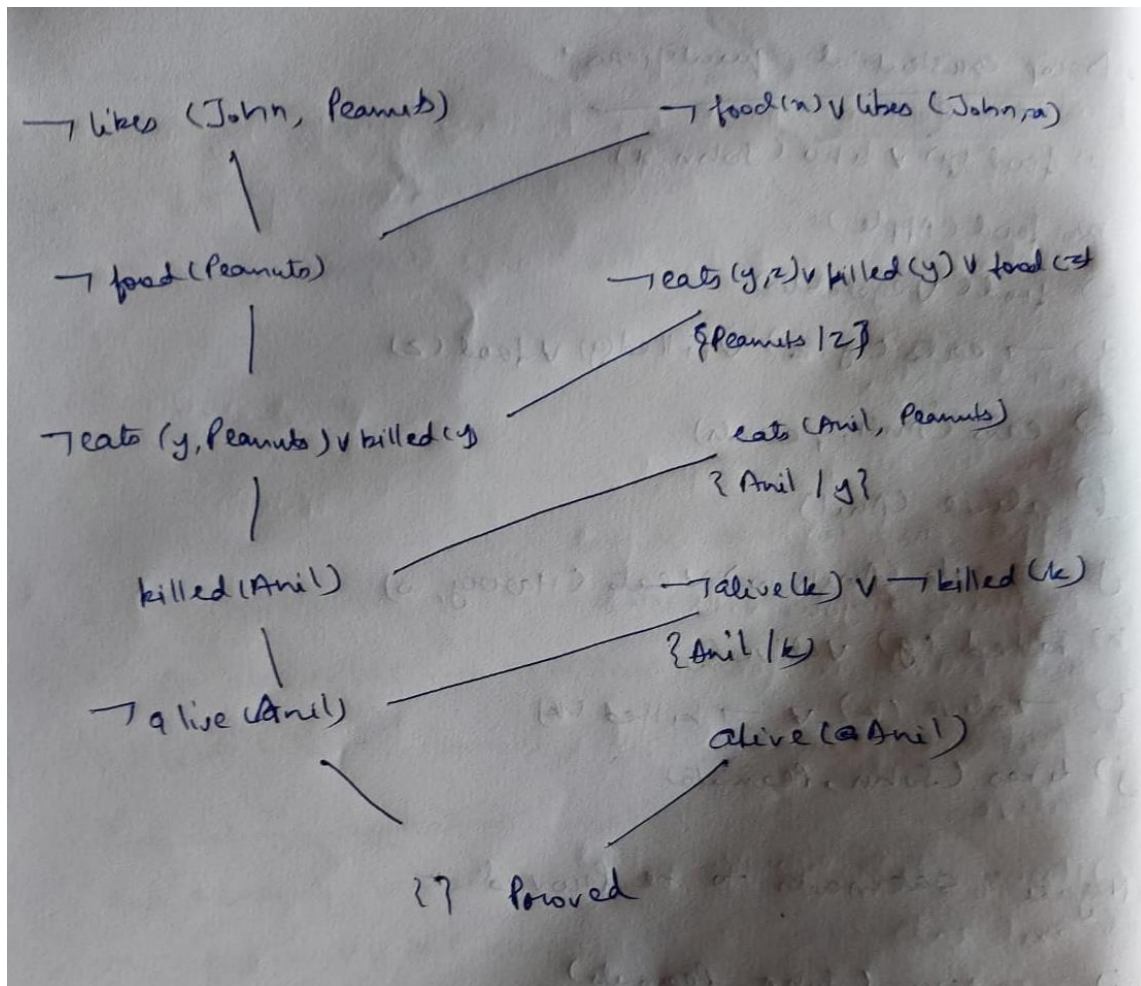 ¬ likes (John, Peanuts)
¬ food(x) ∨ likes (John, x)
¬ food (Peanuts)
¬ eats (y, z) ∨ killed (y) ∨ food (z)
{Peanuts / z}
¬ eats (y, Peanuts) ∨ killed (y)
eats (Anil, Peanuts)
{ Anil / y }
killed (Anil)
¬ alive (k) ∨ ¬ killed (k)
{Anil / k}
¬ alive (Anil)
alive (Anil)
{ } Proved